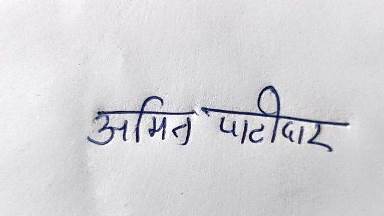 अमित पाटीदार